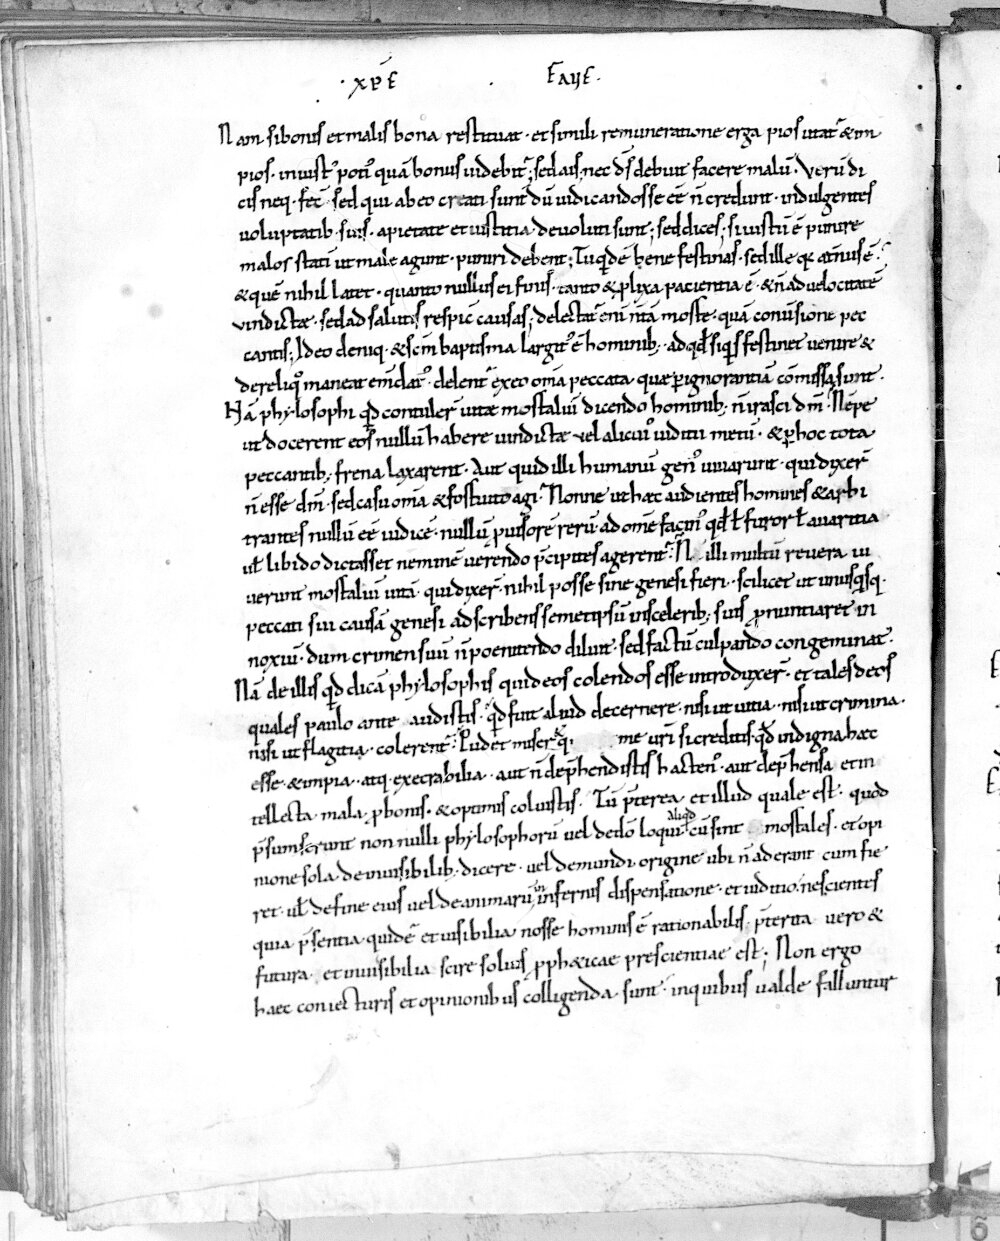 ·xp̄e faue·
Nam si bonis et malis bona restituat · et simili remuneratione erga pios utat᷑ & im
pios · iniust᷒ poti᷒ quā bonus uidebit᷑; sed ais; nec d̄s debuit facere malū · Verū di
cis neq· fec̄ · sed qui ab eo creati sunt dū iudicandos se eē n̄ credunt · indulgentes
uoluptatib· suis · a pietate et iustitia deuoluti sunt; sed dices; si iustū ē punire
malos statī ut male agunt · puniri debent; Tu q̇dē bene festinas · sed ille q· aet̄nus ē·
& quē nihil latet · quanto nullus ei finis · tanto & ꝓlixa pacientia ē · & n̄ ad uelocitatē
uindictæ · sed ad salutis respic̄ causas; delectat᷑ enī n̄ tā morte · quā conūsione pec
cantis; Ideo deniq· & sc̄m baptisma largit᷒ ē hominib; · ad qd̄ siq̇s festinet uenire &
de reliq᷒ maneat em̄clat᷒ · delent᷑ ex eo om̄a peccata quæ ꝑ ignorantiā cōmissa sunt ·
Nā phylosophi qd̄ contuler̄ uitæ mortaliū dicendo hominib; n̄ irasci dm̄ · Nēpe
ut docerent eos nullū habere uindictæ vel alicui᷒ iuditii metū · & ꝑ hoc tota
peccantib; frena laxarent · Aut quid illi humanū gen᷒ iuuarunt · qui dixer̄
n̄ esse dm̄ · sed casu om̄a & fortuito agi · Nonne ut hæc audientes homines & arbi
trantes nullū eē iudicē · nullū puisorē rerū · ad omē facin᷒ qd̄ ł furor ł auaritia
uł libido dictasset neminē uerendo p̄cipites agerent᷑ · N̄ illi multū reuera iu
uerunt mortaliū uitā · qui dixer̄ · nihil posse sine genesi fieri · scilicet ut unusq̇sq·
peccati sui causā genesi adscribens semetipsū in scelerib; suis ꝓnuntiaret in
noxiū · dum crimen suū n̄ poenitendo diluit · sed factū culpando congeminat ·
Nā de illis qd̄ dicā phylosophis qui deos colendos esse introduxer̄ · et tales deos
quales paulo ante audistis · qd̄ fuit aliud decernere · nisi ut uitia · nisi ut crimina ·
nisi ut flagitia · colerent᷑ · Pudet miser&q· me uri si creditis · qd̄ indigna hæc
esse · & impia · atq· execrabilia · aut n̄ dep̄hendistis hacten᷒ · aut dep̄hensa et in
tellecta mala · ꝓ bonis · & optimis coluistis · Tū p̄terea et illud quale est · quod
p̄sumserunt non nulli phylosophorū uel de dō loqui · aliqd cū sint mortales · et opi
nione sola de inuisibilib; dicere · uel de mundi origine ubi n̄ aderant cum fie
ret · uł de fine eius uel de animarū in infernis dispensatione · et iuditio · nescientes
quia p̄sentia quidē et uisibilia nosse hominis ē rationabilis · p̄terita uero &
futura · et inuisibilia scire solius ꝓph&icae prescientiae est; Non ergo
haec coniecturis et opinionibus colligenda sunt · in quibus ualde falluntur